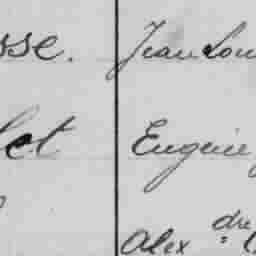 sse. Jean Lou
let Eugène
Alex dre